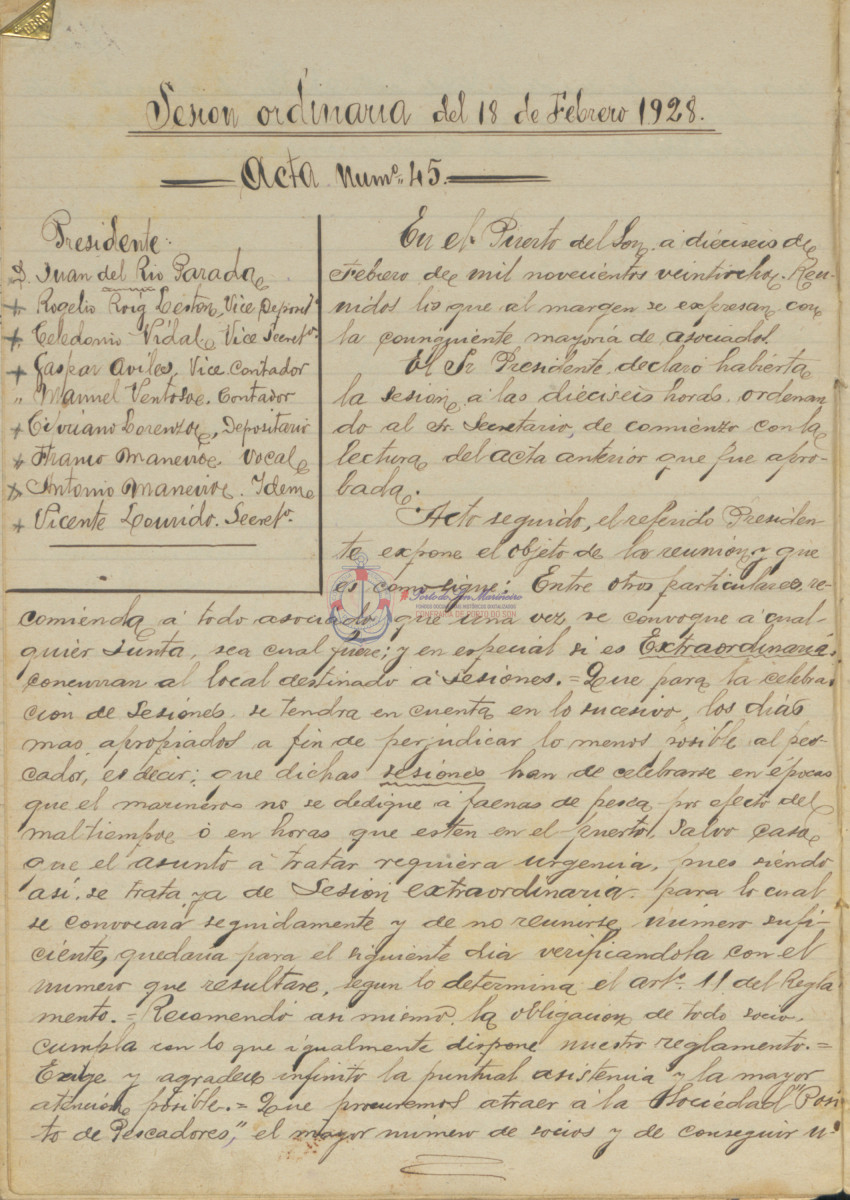 Sesion ordinaria del 18 de Febrero 1928.
Acta Numº. 45.
Presidente.
D. Juan del Rio Parada
+ Rogelio Roig Leston, Vice Depositº
+ Celedonio Vidal, Vice Secretº.
+ Gaspar Aviles, Vice Contador
" Manuel Ventoso. Contador
+ Cipriano Lorenzo, Depositario
+ Franco Maneiro. Vocal
+ Antonio Maneiro. Idem
+ Vicente Lourido. Secretº.
En el Puerto del Son, a dieciseis de
Febrero de mil novecientos veintiocho. Reu-
nidos los que al margen se expresan con
la consiguiente mayoría de asociados.
El Sr Presidente, declaró habierta
la sesión a las dieciseis horas, ordenan
do al Sr. Secretario, de comienzo con la
lectura del acta anterior que fue apro-
bada.
Acto seguido, el referido Presiden-
te expone el objeto de la reunión y que
es como sigue: Entre otros particulares, re-
comienda á todo asociado, que una vez se convoque a cual-
quier Junta, sea cual fuere; y en especial si es Extraordinaria,
concurran al local destinado a Sesiones. = Que para la celebra-
ción de Sesiones, se tendra en cuenta en lo sucesivo, los días
mas apropiados a fin de perjudicar lo menos posible al pes-
cador, es decir; que dichas sesiones han de celebrarse en épocas
que el marinero no se dedique á faenas de pesca por efecto del
mal tiempo ó en horas que esten en el puerto, Salvo caso
que el asunto á tratar requiera urgencia, pues siendo
así, se trata ya de Sesion extraordinaria, para lo cual
se convocará seguidamente y de no reunirse número sufi-
ciente, quedaria para el siguiente dia verificandola con el
numero que resultare, segun lo determina el artº. 11 del Regla
mento. = Recomendó asi mismo, la obligacion de todo socio,
cumpla con lo que igualmente dispone nuestro reglamento. =
Exige y agradece infinito la puntual asistencia y la mayor
atención posible. = Que procuremos atraer á la Sociedad "Posi
to de Pescadores," el mayor número de socios y de conseguir
Porto do Son Mariñeiro
FONDOS DOCUMENTAIS HISTÓRICOS DIGITALIZADOS
CONFRARÍA DE PORTO DO SON